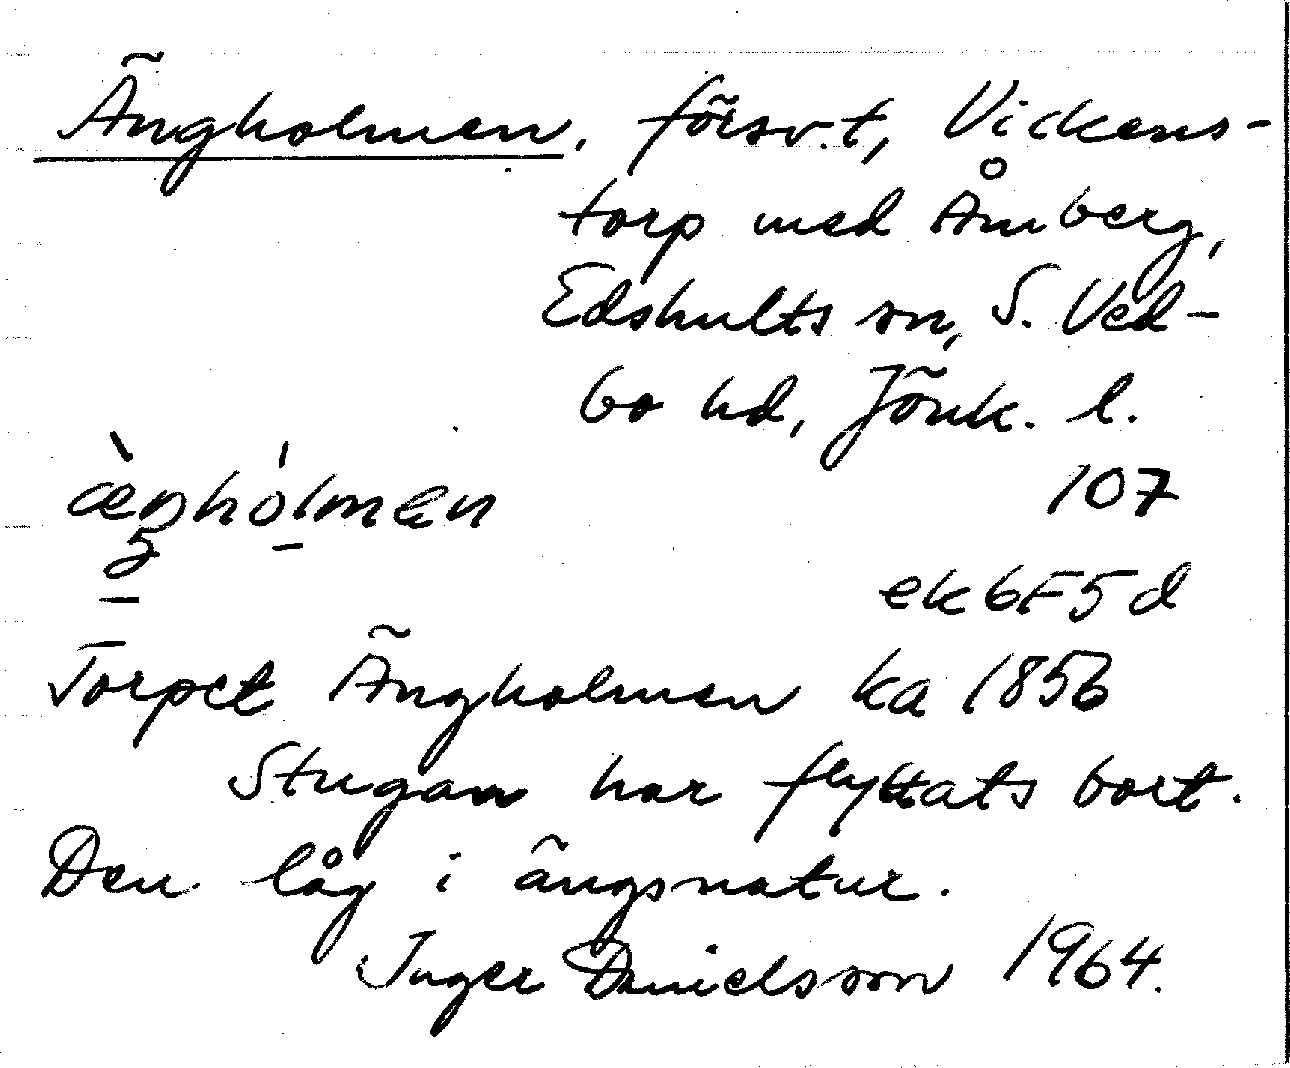 Ängholmen, försv.t, Vickens-
torp med Åmberg,
Edshults sn, S. Ved-
bo hd, Jönk. l.
107
ek 6F5d
Torpet Ängholmen ka 1856
Stugan har flyttats bort.
Den låg i ängsnatur.
Inger Danielsson 1964.